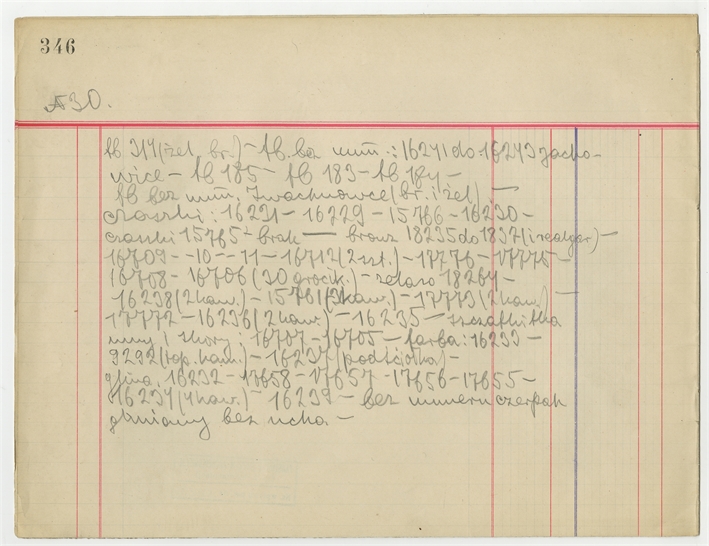 346
A30.
fb 314 (żel. br.) – fb. bez num.: 16241 do 16243 Jacko-
wice – fb 185 – fb 183 – fb 184 –
fb bez num. Iwachnowce (br. i żel) —
czaszki: 16231 – 16229 – 15766 – 16230 –
czaszki 15765 – brak — bronz 18235 do 1837 (i realgar) –
16709 – -10 – -11 – 16712 (2 szt.) – 17776 – 17775 –
16708 – 16706 (30 grocik.) – żelazo 18264 –
16238 (2 kaw.) – 15761 (3 kaw.) – 17773 (2 kaw.) —
17772 – 16236 (2 kaw.) – 16235 – szczątki tka
niny i skóry: 16707 – 16705 – farba: 16233 –
9292 (top. kam.) – 16237 (podściółka) –
glina. 16232 – 17658 – 17657 – 17656 – 17655 –
16234 (4 kaw.) – 16239 – bez numeru czerpak
gliniany bez ucha. –